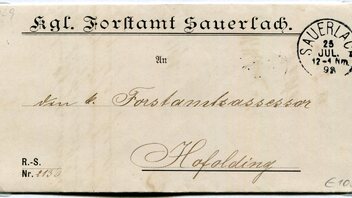 Kgl. Forstamt Sauerlach.
SAUERLACH
25
JUL.
12-1 Nm
98
An
den k. Forstamtsassessor
Hofolding
R.-S.
Nr. 1130